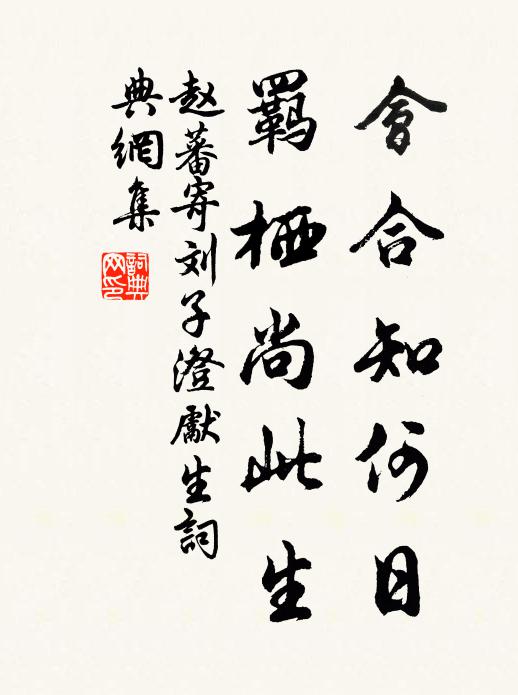 會合知何日
羈栖尚此生
赵蕃寄刘子澄獻生詞
典網集
詞典
网印